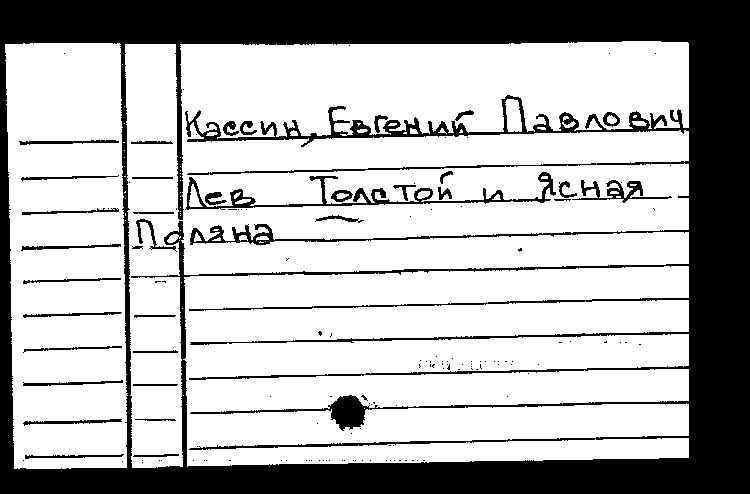 Кассин, Евгений Павлович
Лев Толстой и Ясная
Поляна